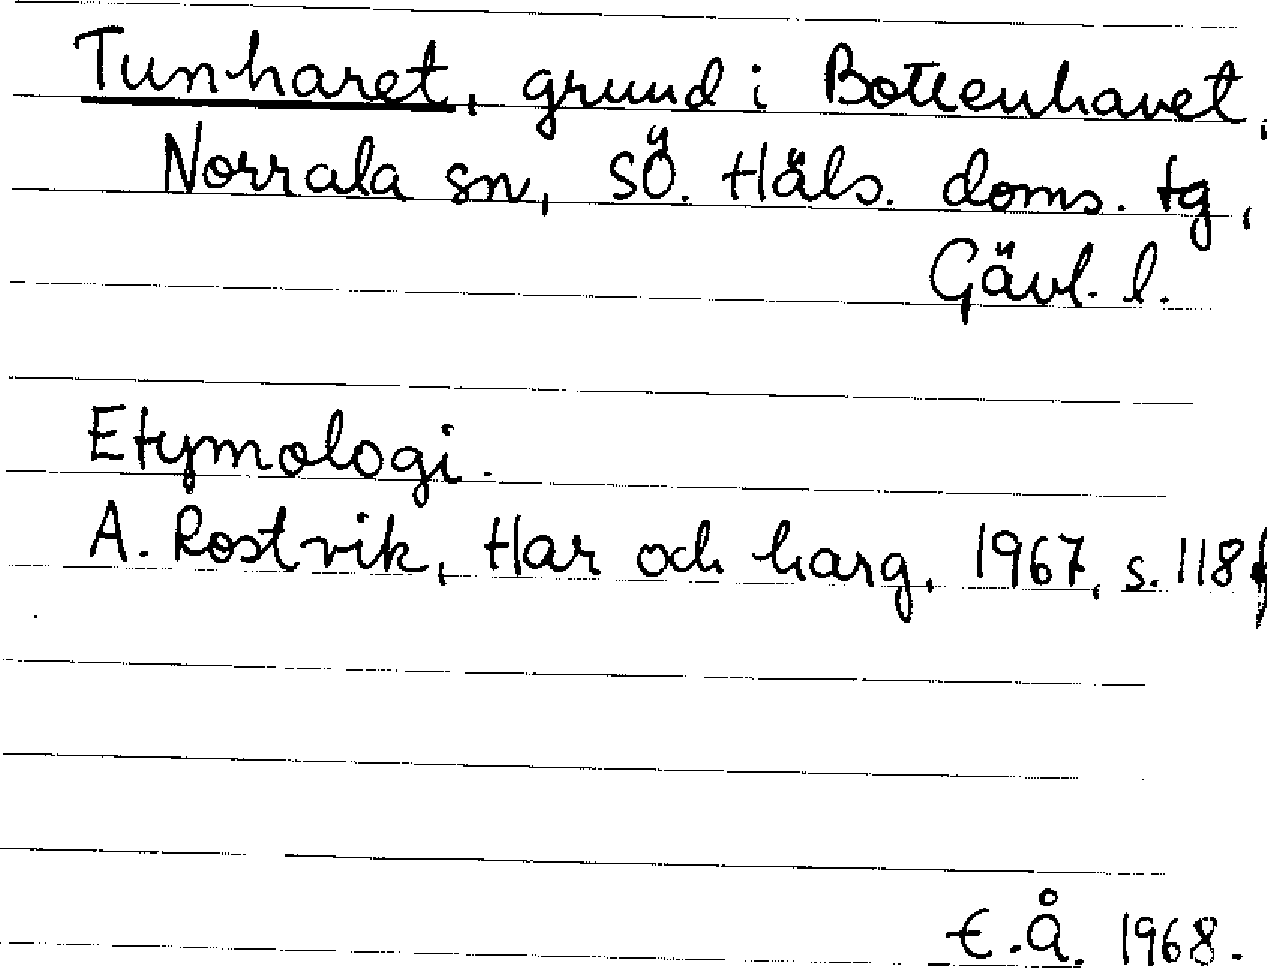 Tunharet, grund i Bottenhavet,
Norrala sn, SÖ. Häls. doms. tg,
Gävl. l.
Etymologi.
A. Rostvik, Har och harg, 1967, s. 118f
E.Å. 1968.